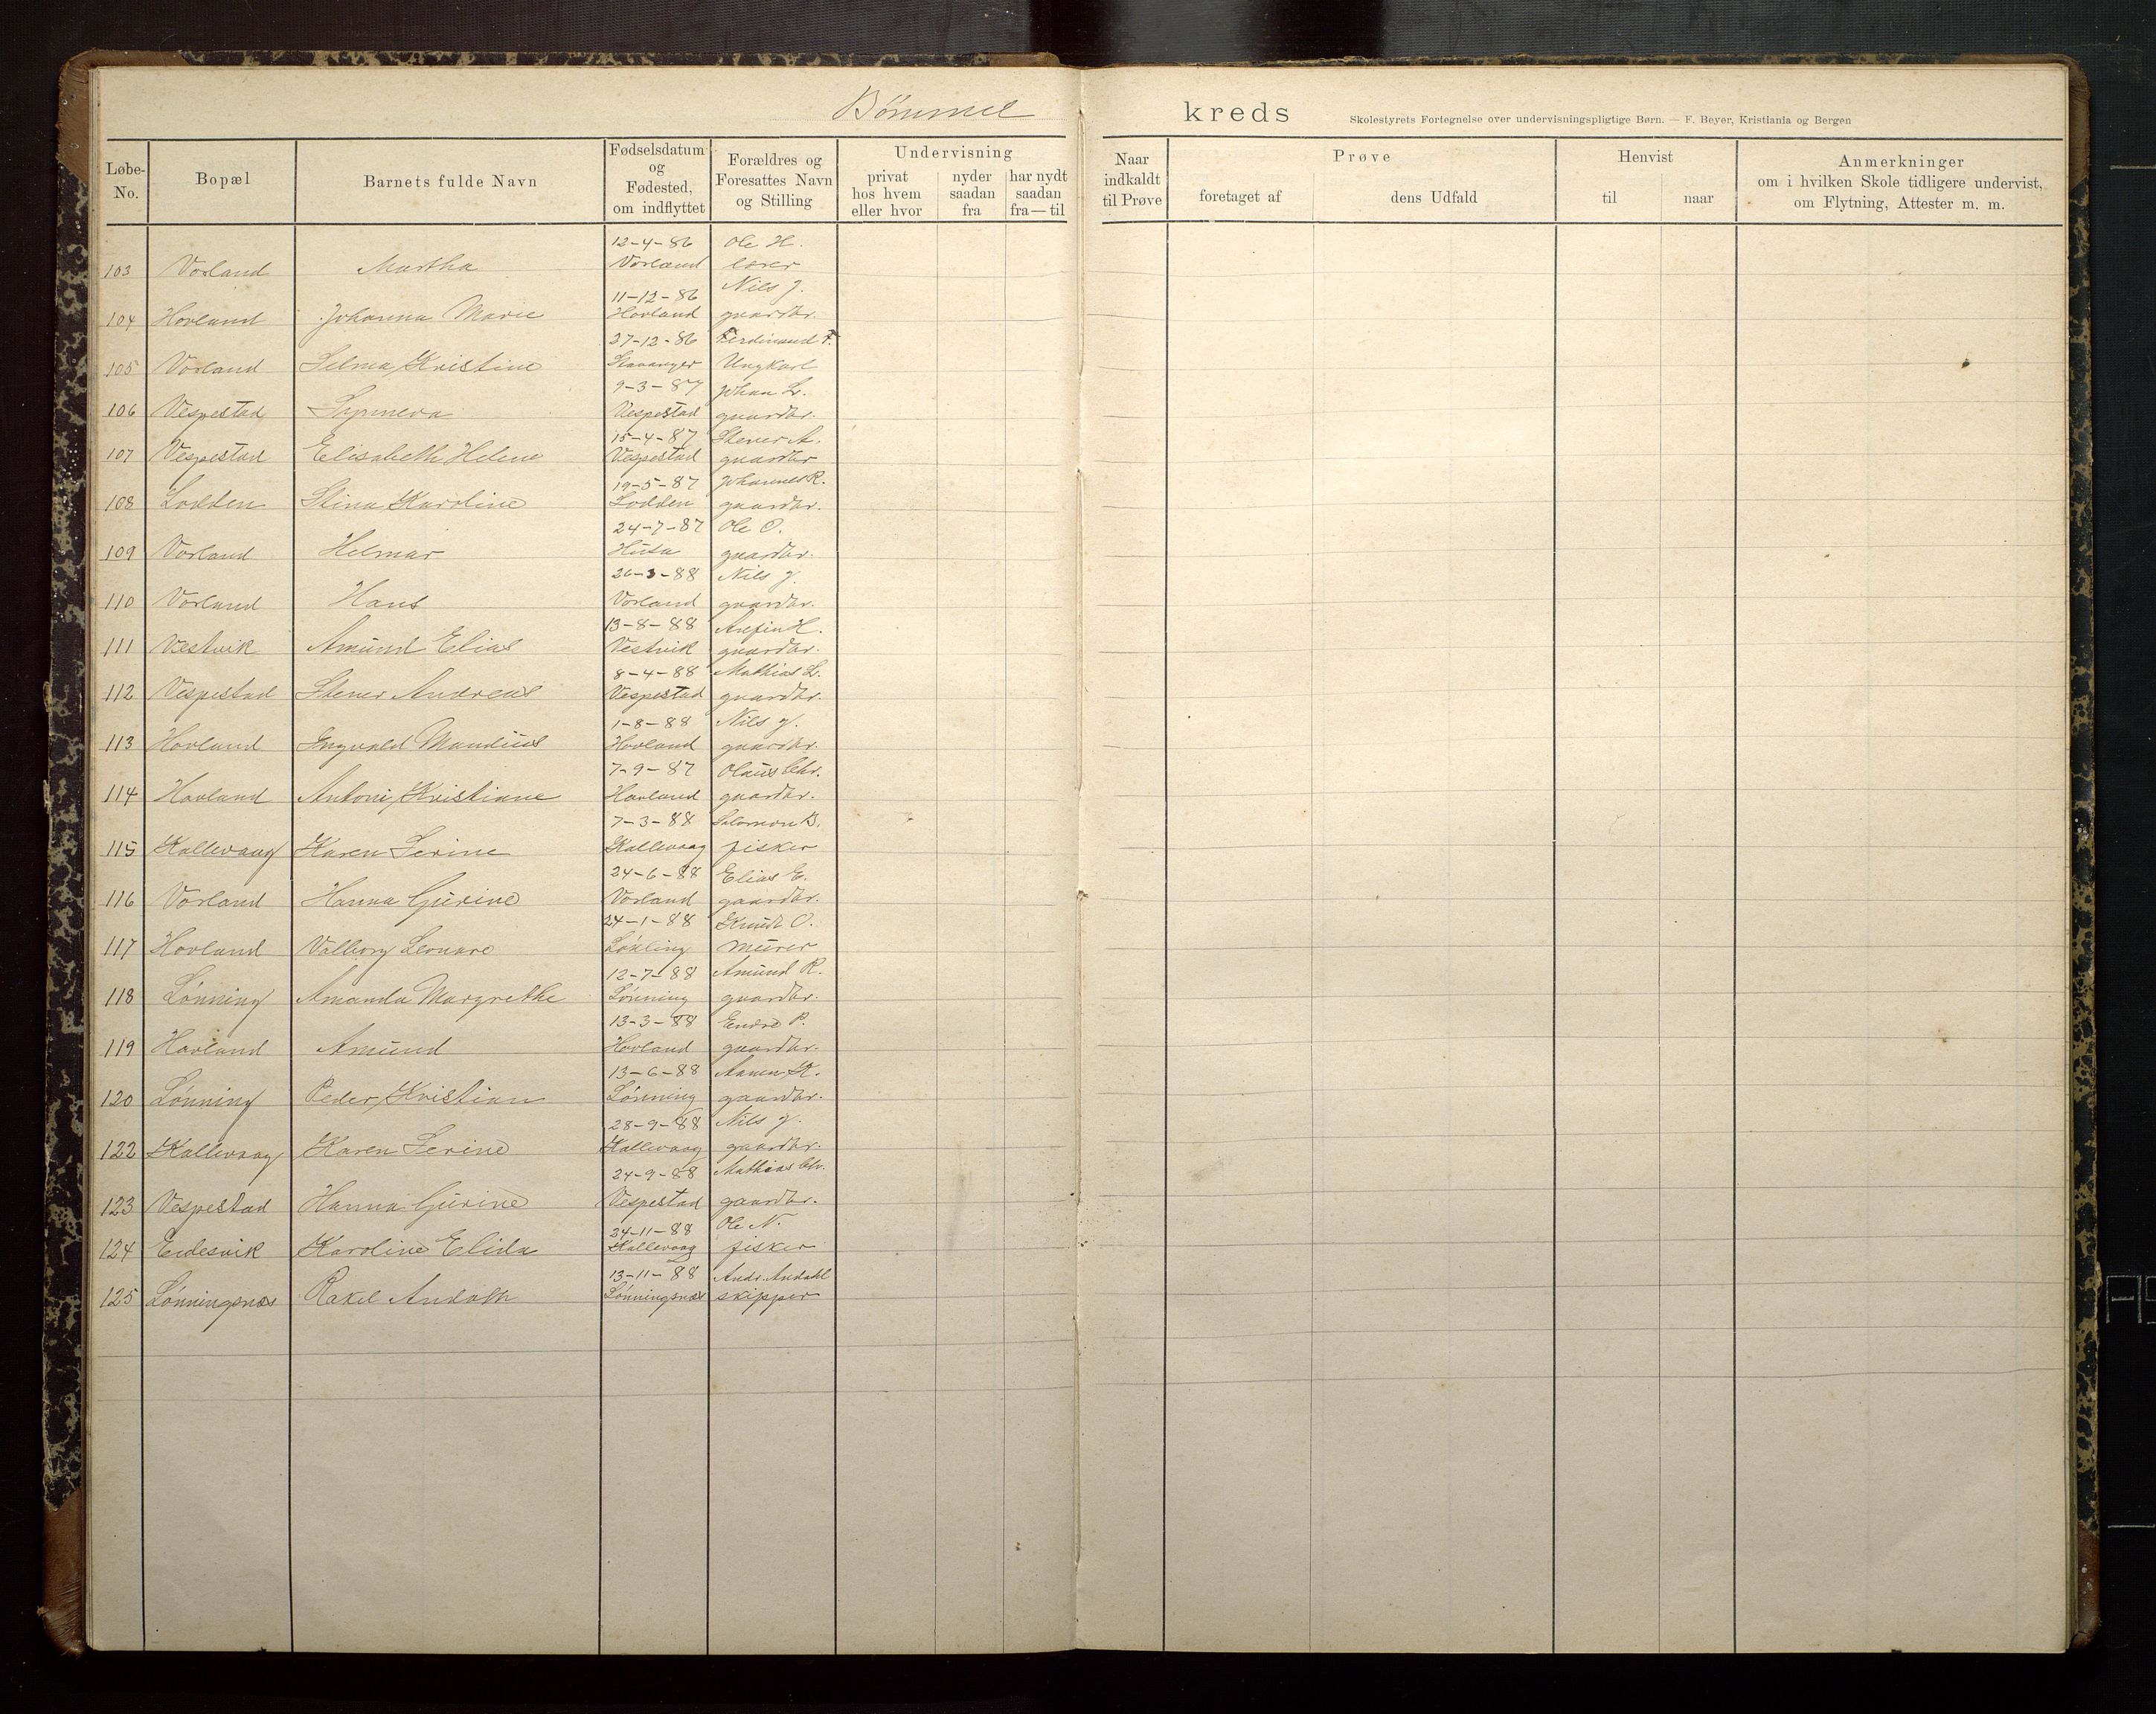 Bömmel kreds
Skolestyrets Fortegnelse over undervisningspligtige Børn. — F. Beyer, Kristiania og Bergen
Løbe-No. Bopæl Barnets fulde Navn Fødselsdatum og Fødested, om indflyttet Forældres og Foresattes Navn og Stilling Undervisning privat hos hvem eller hvor nyder saadan fra har nydt saadan fra — til Naar indkaldt til Prøve Prøve foretaget af dens Udfald Henvist til naar Anmerkninger om i hvilken Skole tidligere undervist, om Flytning, Attester m. m.
12-4-86 Ole H.
103 Vorland Martha Vorland lærer
11-12-86 Nils J.
104 Hovland Johanna Marie Hovland gaardbr.
27-12-86 Ferdinand F.
105 Vorland Selma Kristine Stavanger Ungkarl
9-3-87 Johan L.
106 Vespestad Synneva Vespestad gaardbr.
15-4-87 Stener A.
107 Vespestad Elisabeth Helene Vespestad gaardbr
19-5-87 Johannes R.
108 Lodden Stina Karoline Lodden gaardbr.
24-7-87 Ole O.
109 Vorland Helmar Husa gaardbr.
26-3-88 Nils J.
110 Vorland Hans Vorland gaardbr.
13-8-88
111 Vestvik Amund Elias Vestvik gaardbr.
8-4-88 Mathias L.
112 Vespestad Stener Andreas Vespestad gaardbr.
1-8-88 Nils J.
113 Hovland Ingvald Mandius Hovland gaardbr.
7-9-87 Olaus Chr.
114 Hovland Antoni Kristiane Hovland gaardbr.
7-3-88 Salomon B.
115 Kallevaag Karen Serine Kallevaag fisker
24-6-88 Elias E.
116 Vorland Hanna Gurine Vorland gaardbr.
24-1-88 Knudt O.
117 Hovland Valborg Leonare Løkling murer
12-7-88 Amund R.
118 Lønning Amanda Margrethe Lønning gaardbr.
13-3-88 Endre P.
119 Hovland Amund Hovland gaardbr.
13-6-88
120 Lønning Peder Kristian Lønning gaardbr.
28-9-88 Nils J.
122 Kallevaag Karen Serine Kallevaag gaardbr.
24-9-88 Mathias Chr.
123 Vespestad Hanna Gurine Vespestad gaardbr.
24-11-88 Ole N.
124 Eidesvik Karoline Elida Kallevaag fisker
13-11-88 Andr. Andahl
125 Lønningsnæs Rakel Lønningsnæs skipper